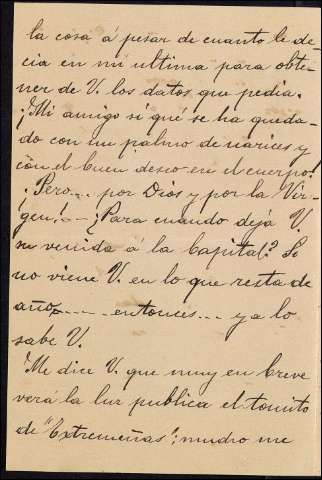 la cosa á pesar de cuanto le de-
cia en mi ultima para obte-
ner de V. los datos que pedia.
¡Mi amigo si qué se ha queda-
do con un palmo de narices y
con el buen deseo en el cuerpo!
.Pero... por Dios y por la Vir-
gen!-- ¿Para cuando dejá V.
su venida á la Capital? Si
no viene V. en lo que resta de
año,---- entonces... ya lo
sabe V.
Me dice V. que muy en breve
verá la luz publica el tomito
de "Extremeñas"; mucho me